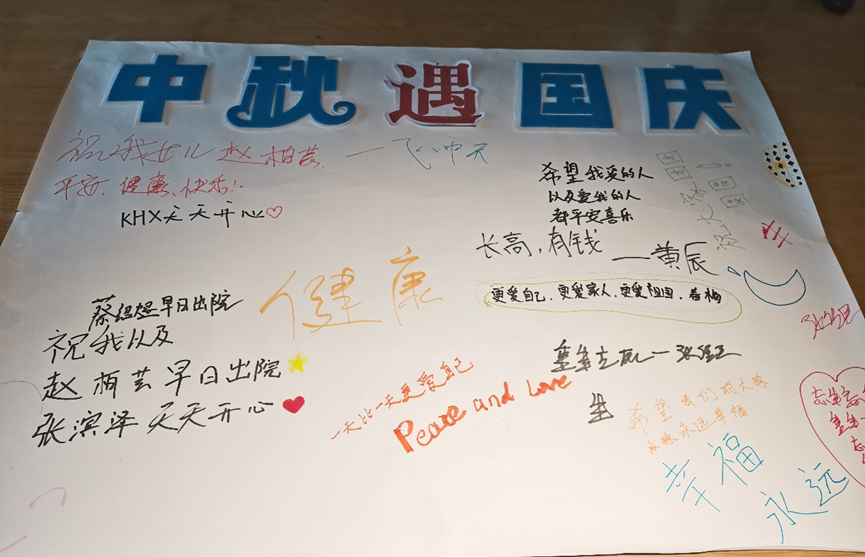 中秋遇国庆
祝我女儿赵柏芸 一飞冲天
平安、健康、快乐!
KHX天天开心♡
希望我爱的人
以及爱我的人
都平安喜乐
长高,有钱
——黄辰
更爱自己、更爱家人、更爱祖国、春梅
健康
早日出院
祝我以及
赵柏芸早日出院
张滨泽天天开心
一天比一天更爱自己
Peace and Love
希望我们的大家
永远幸福
幸福
永远